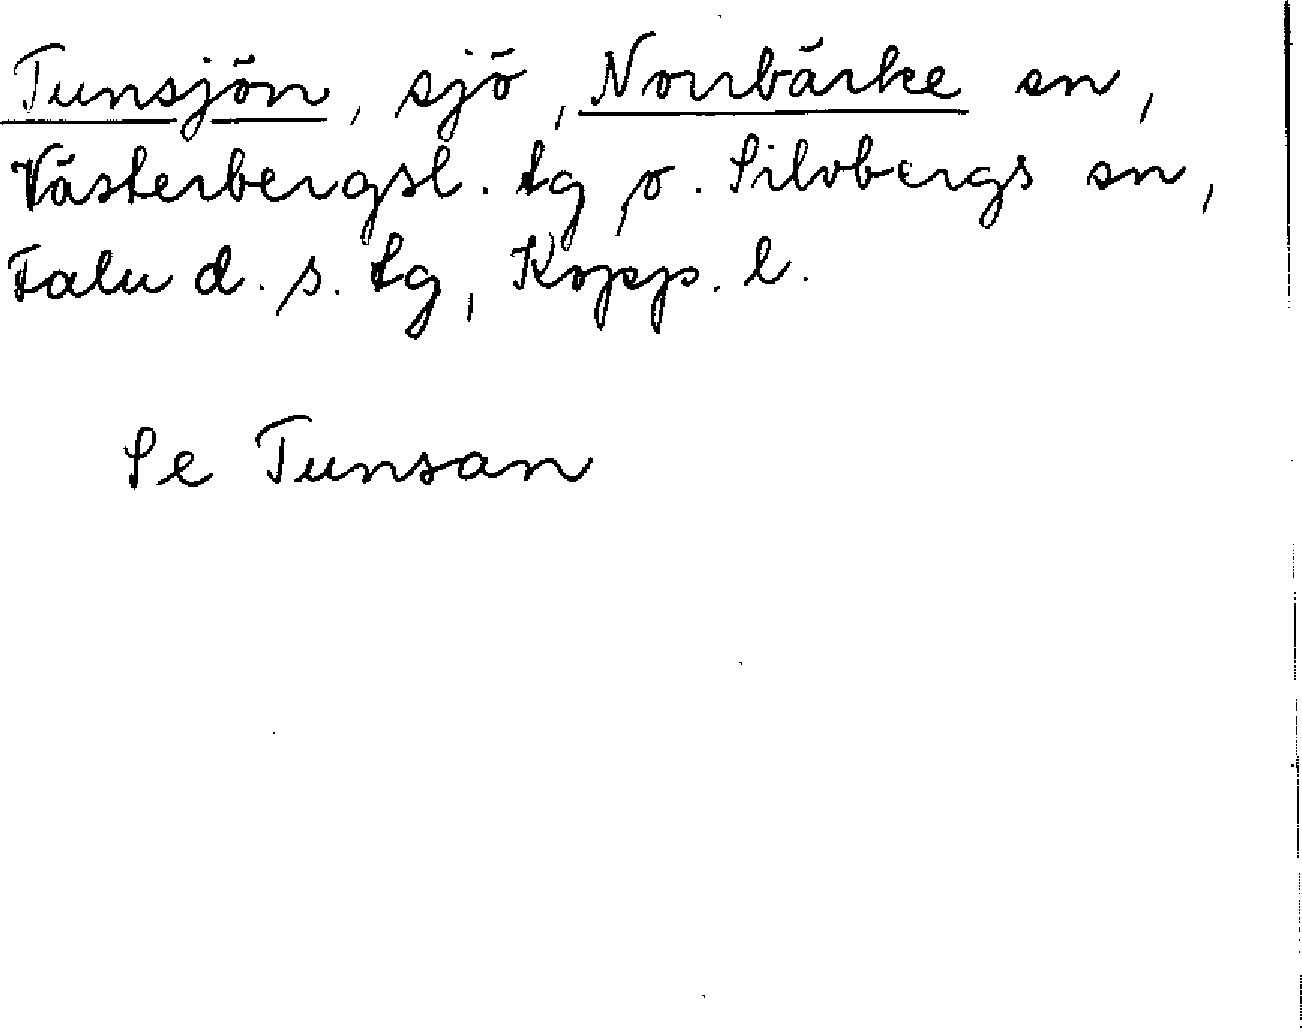 Tunsjön, sjö, Norrbärke sn,
Västerbergsl. tg o. Silvbergs sn,
Falu d. s. tg, Kopp. l.
Se Tunsan